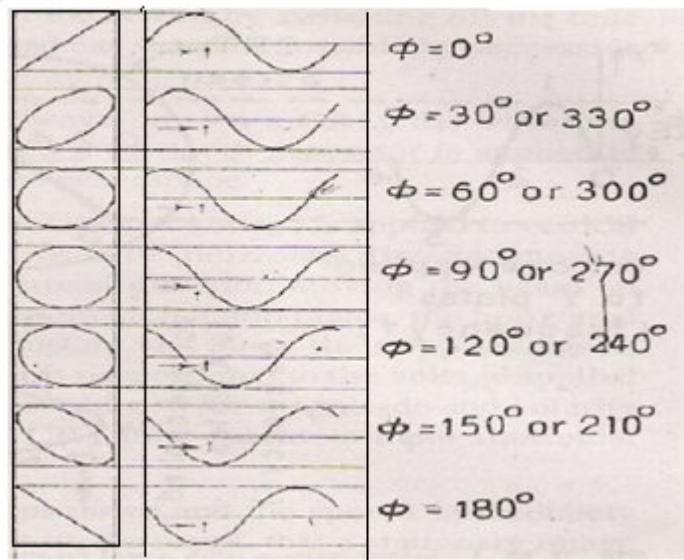 ϕ=0°
ϕ=30° or 330°
ϕ=60° or 300°
ϕ=90° or 270°
ϕ=120° or 240°
ϕ=150° or 210°
ϕ=180°